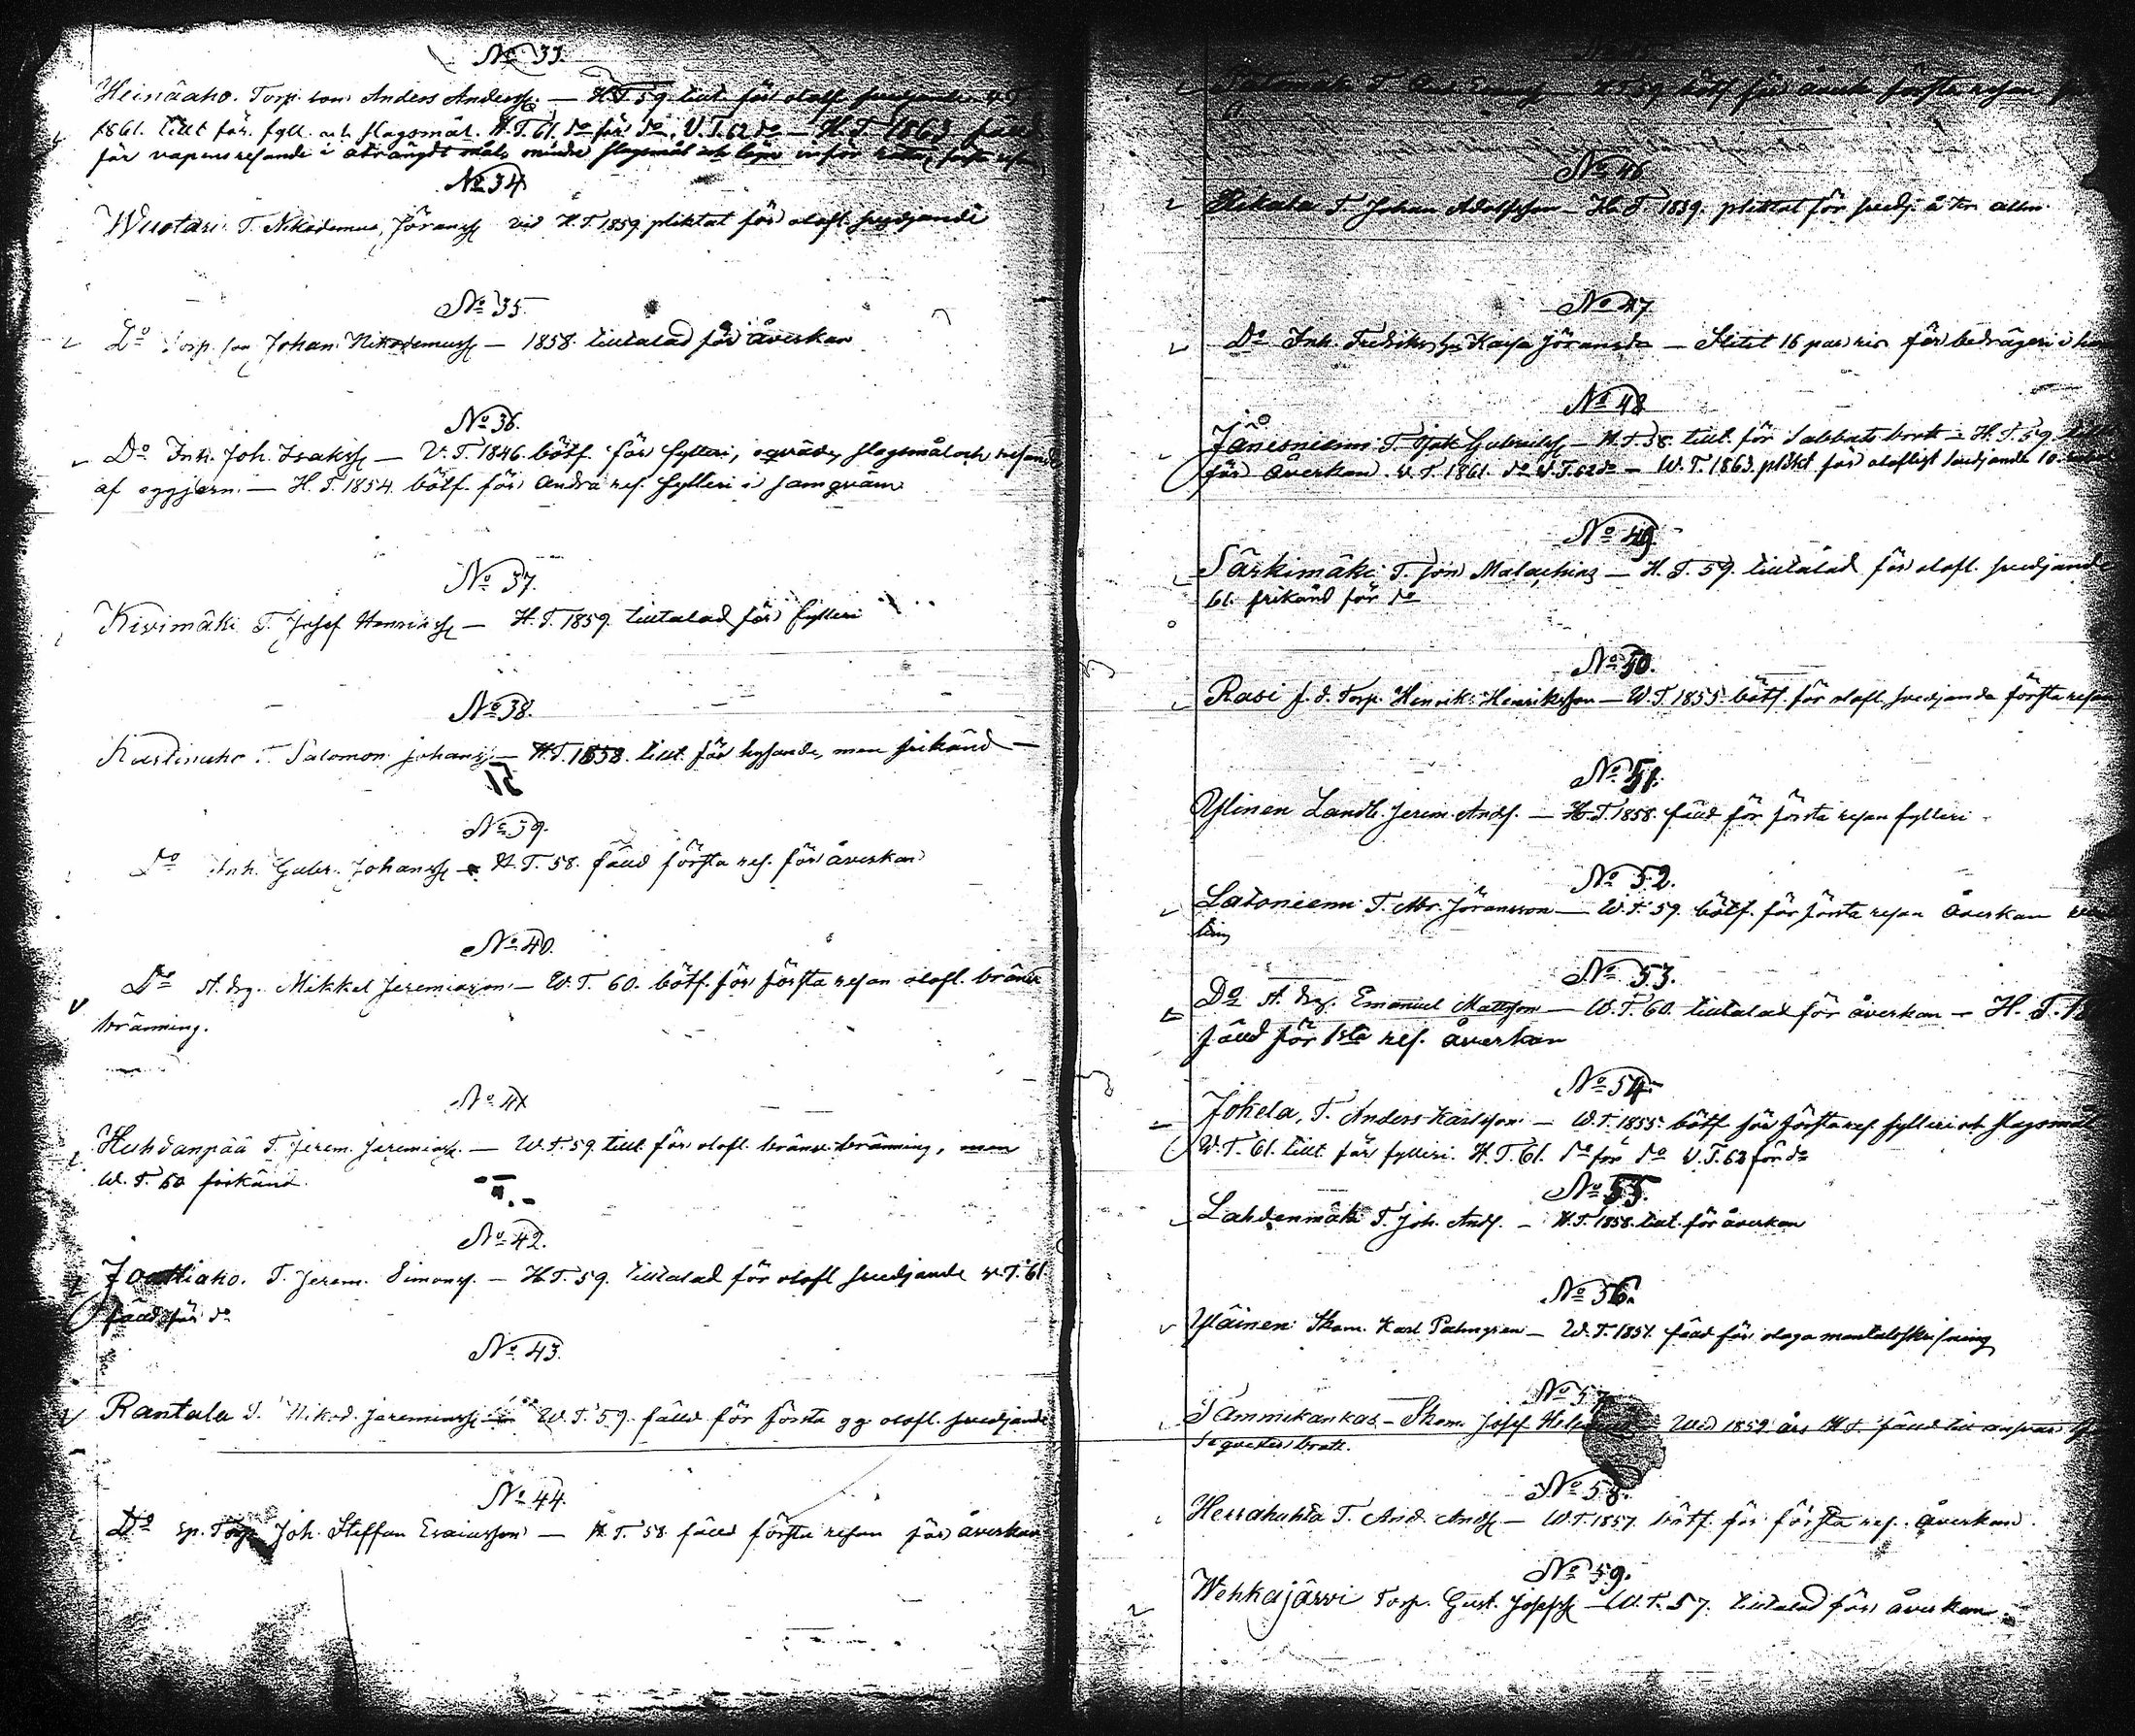 No 33.
Heinäaho. Torp. son Anders Anderss. — H.T. 59. tillt. för olofl. svedjande V.T.
1861. tillt för. fyll. och slagsmål. H.T. 61. do för do. V.T. 62 do — H.T. 1863 fälld
för vapens resande i oträngdt mål, mindre slagsmål och
No 34
Wuotari T. Nikodemus Jöranss vid H.T. 1859 pliktat för olofl. svedjande
No 35.
Do Torp. son Johan Nikodemuss — 1858. tilltalad för åverkan
No 36.
Do Inh. Joh. Isakss — V.T. 1846. bötf. för fylleri, oqväde, slagsmål och resande
af eggjern. — H.T. 1854. bötf. för andra res. fylleri i samqväm
No 37.
Kivimäki T. Josef Henrikss — H.T. 1859. tilltalad för fylleri
No 38.
T. Salomon Johans — H.T. 1858. tillt. för hysande, men frikänd —
No 39.
Do Inh. Gabr. Johanss — H.T. 58. fälld första res. för åverkan
No 40.
Do A. drg. Mikkel Jeremiasson — W.T. 60. bötf. för första resan olofl. bränv.
bränning.
No 41
Huhdanpää T. Jerem. Jeremiass. — W.T. 59. tillt för olofl. bränv. bränning, men
W.T. 60 frikänd
No 42.
T. Jerem. Simons. — H.T. 59. tilltalad för olofl svedjande V.T. 61
fälld för do
No 43.
Rantala T. Nikod. Jeremiass — W.T. 59. fälld för första gg. olofl. svedjande
No 44.
Do Sp. Torp. Joh. Steffan Esaiasson — H.T. 58 fälld första resan för åverkan
T. And. H.T. 59 bötf för åverk. första resan
61.
No 46
T Johan Adolfsson — H.T. 1859. pliktat för svedj. å Kr. allm.
No 47
Do Inh. Fredriks h. Kajsa Jöransdr — Slitit 16 par ris för bedrägeri i
No 48
Jänesniemi T. Isak Gabrielss — H.T. 58. tillt. för Sabbats brott — H.T. 59.
för åverkan. V.T. 1861. do V.T. 62 do — W.T. 1863 plikt för olofligt svedjande
No 49.
Särkimäki T. Jon Malachias — H.T. 59. tilltalad för olofl. svedjande
61. frikänd för do
No 50.
Rasi f. d. Torp. Henrik Henriksson — W.T. 1855. bötf. för olofl. svedjande första resan
No 51.
Ylinen Landb. Jerem. Ands. — H.T. 1858. fälld för första resan fylleri
No 52.
Latoniemi T. Abr. Jöransson — W.T. 59. bötf. för första resan åverkan
No 53.
Do A. drg. Emanuel Mattsson — W.T. 60. tilltalad för åverkan — H.T.
fälld för 1sta res. åverkan
No 54.
Jokela, T. Anders Karlsson — W.T. 1855. bötf för första res. fylleri och slagsmål
V.T. 61. tillt för fylleri. H.T. 61. do för do V.T. 62 för do
No 55.
Lahdenmäki T. Joh. Ands. — H.T. 1858. tillt. för åverkan
No 56.
Yläinen Skom. Karl Palmgren — W.T. 1857. fälld för olaga mantalsskrifning
No 57
Tammikankas — Skom. Josef Wid 1859 års H.T. fälld till ansvar
sequester brott.
No 58.
Herrahuhta T. And. Ands — W.T. 1857. bötf. för första res. åverkan.
No 59.
Wehkajärvi Torp. Gust. Josefss — W.T. 57. tilltalad för åverkan